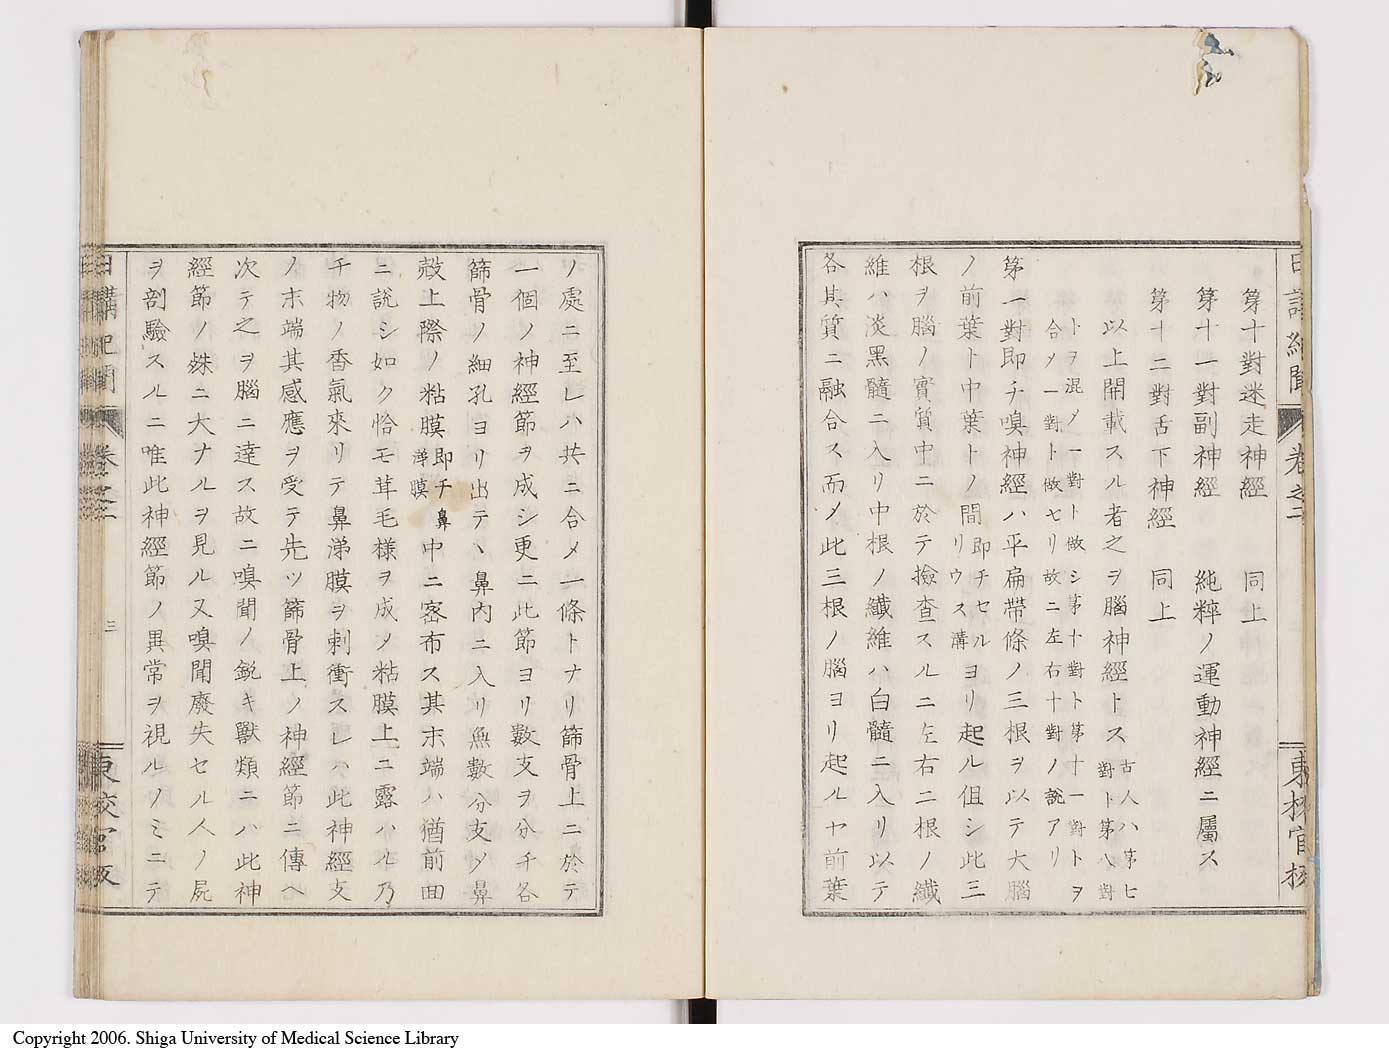 日講紀聞 卷之二 東校官板
第十對迷走神經 同上
第十一對副神經 純粹ノ運動神經ニ屬ス
第十二對舌下神經 同上
以上開載スル者之ヲ腦神經トス古人ハ第七對ト第八對
トヲ混メ一對ト做シ第十對ト第十一對トヲ
合メ一對ト做セリ故ニ左右十對ノ說アリ
第一對即チ嗅神經ハ平扁帶條ノ三根ヲ以テ大腦
ノ前葉ト中葉トノ間即チセルリウス溝ヨリ起ル但シ此三
根ヲ腦ノ實質中ニ於テ撿查スルニ左右二根ノ纖
維ハ淡黑髓ニ入リ中根ノ纖維ハ白髓ニ入リ以テ
各其質ニ融合ス而メ此三根ノ腦ヨリ起ルヤ前葉
ノ處ニ至レハ共ニ合メ一條トナリ篩骨上ニ於テ
一個ノ神經節ヲ成シ更ニ此節ヨリ數支ヲ分チ各
篩骨ノ細孔ヨリ出テヽ鼻內ニ入リ無數分支メ鼻
殼上際ノ粘膜即チ鼻涕膜中ニ密布ス其末端ハ猶前回
ニ說シ如ク恰モ茸毛樣ヲ成メ粘膜上ニ露ハル乃
チ物ノ香氣來リテ鼻涕膜ヲ刺衝スレハ此神經支
ノ末端其感應ヲ受テ先ツ篩骨上ノ神經節ニ傳ヘ
次テ之ヲ腦ニ達ス故ニ嗅聞ノ銳キ獸類ニハ此神
經節ノ殊ニ大ナルヲ見ル又嗅聞廢失セル人ノ屍
ヲ剖驗スルニ唯此神經節ノ異常ヲ視ルノミニテ
日講紀聞 卷之二 三 東校官板
Copyright 2006. Shiga University of Medical Science Library